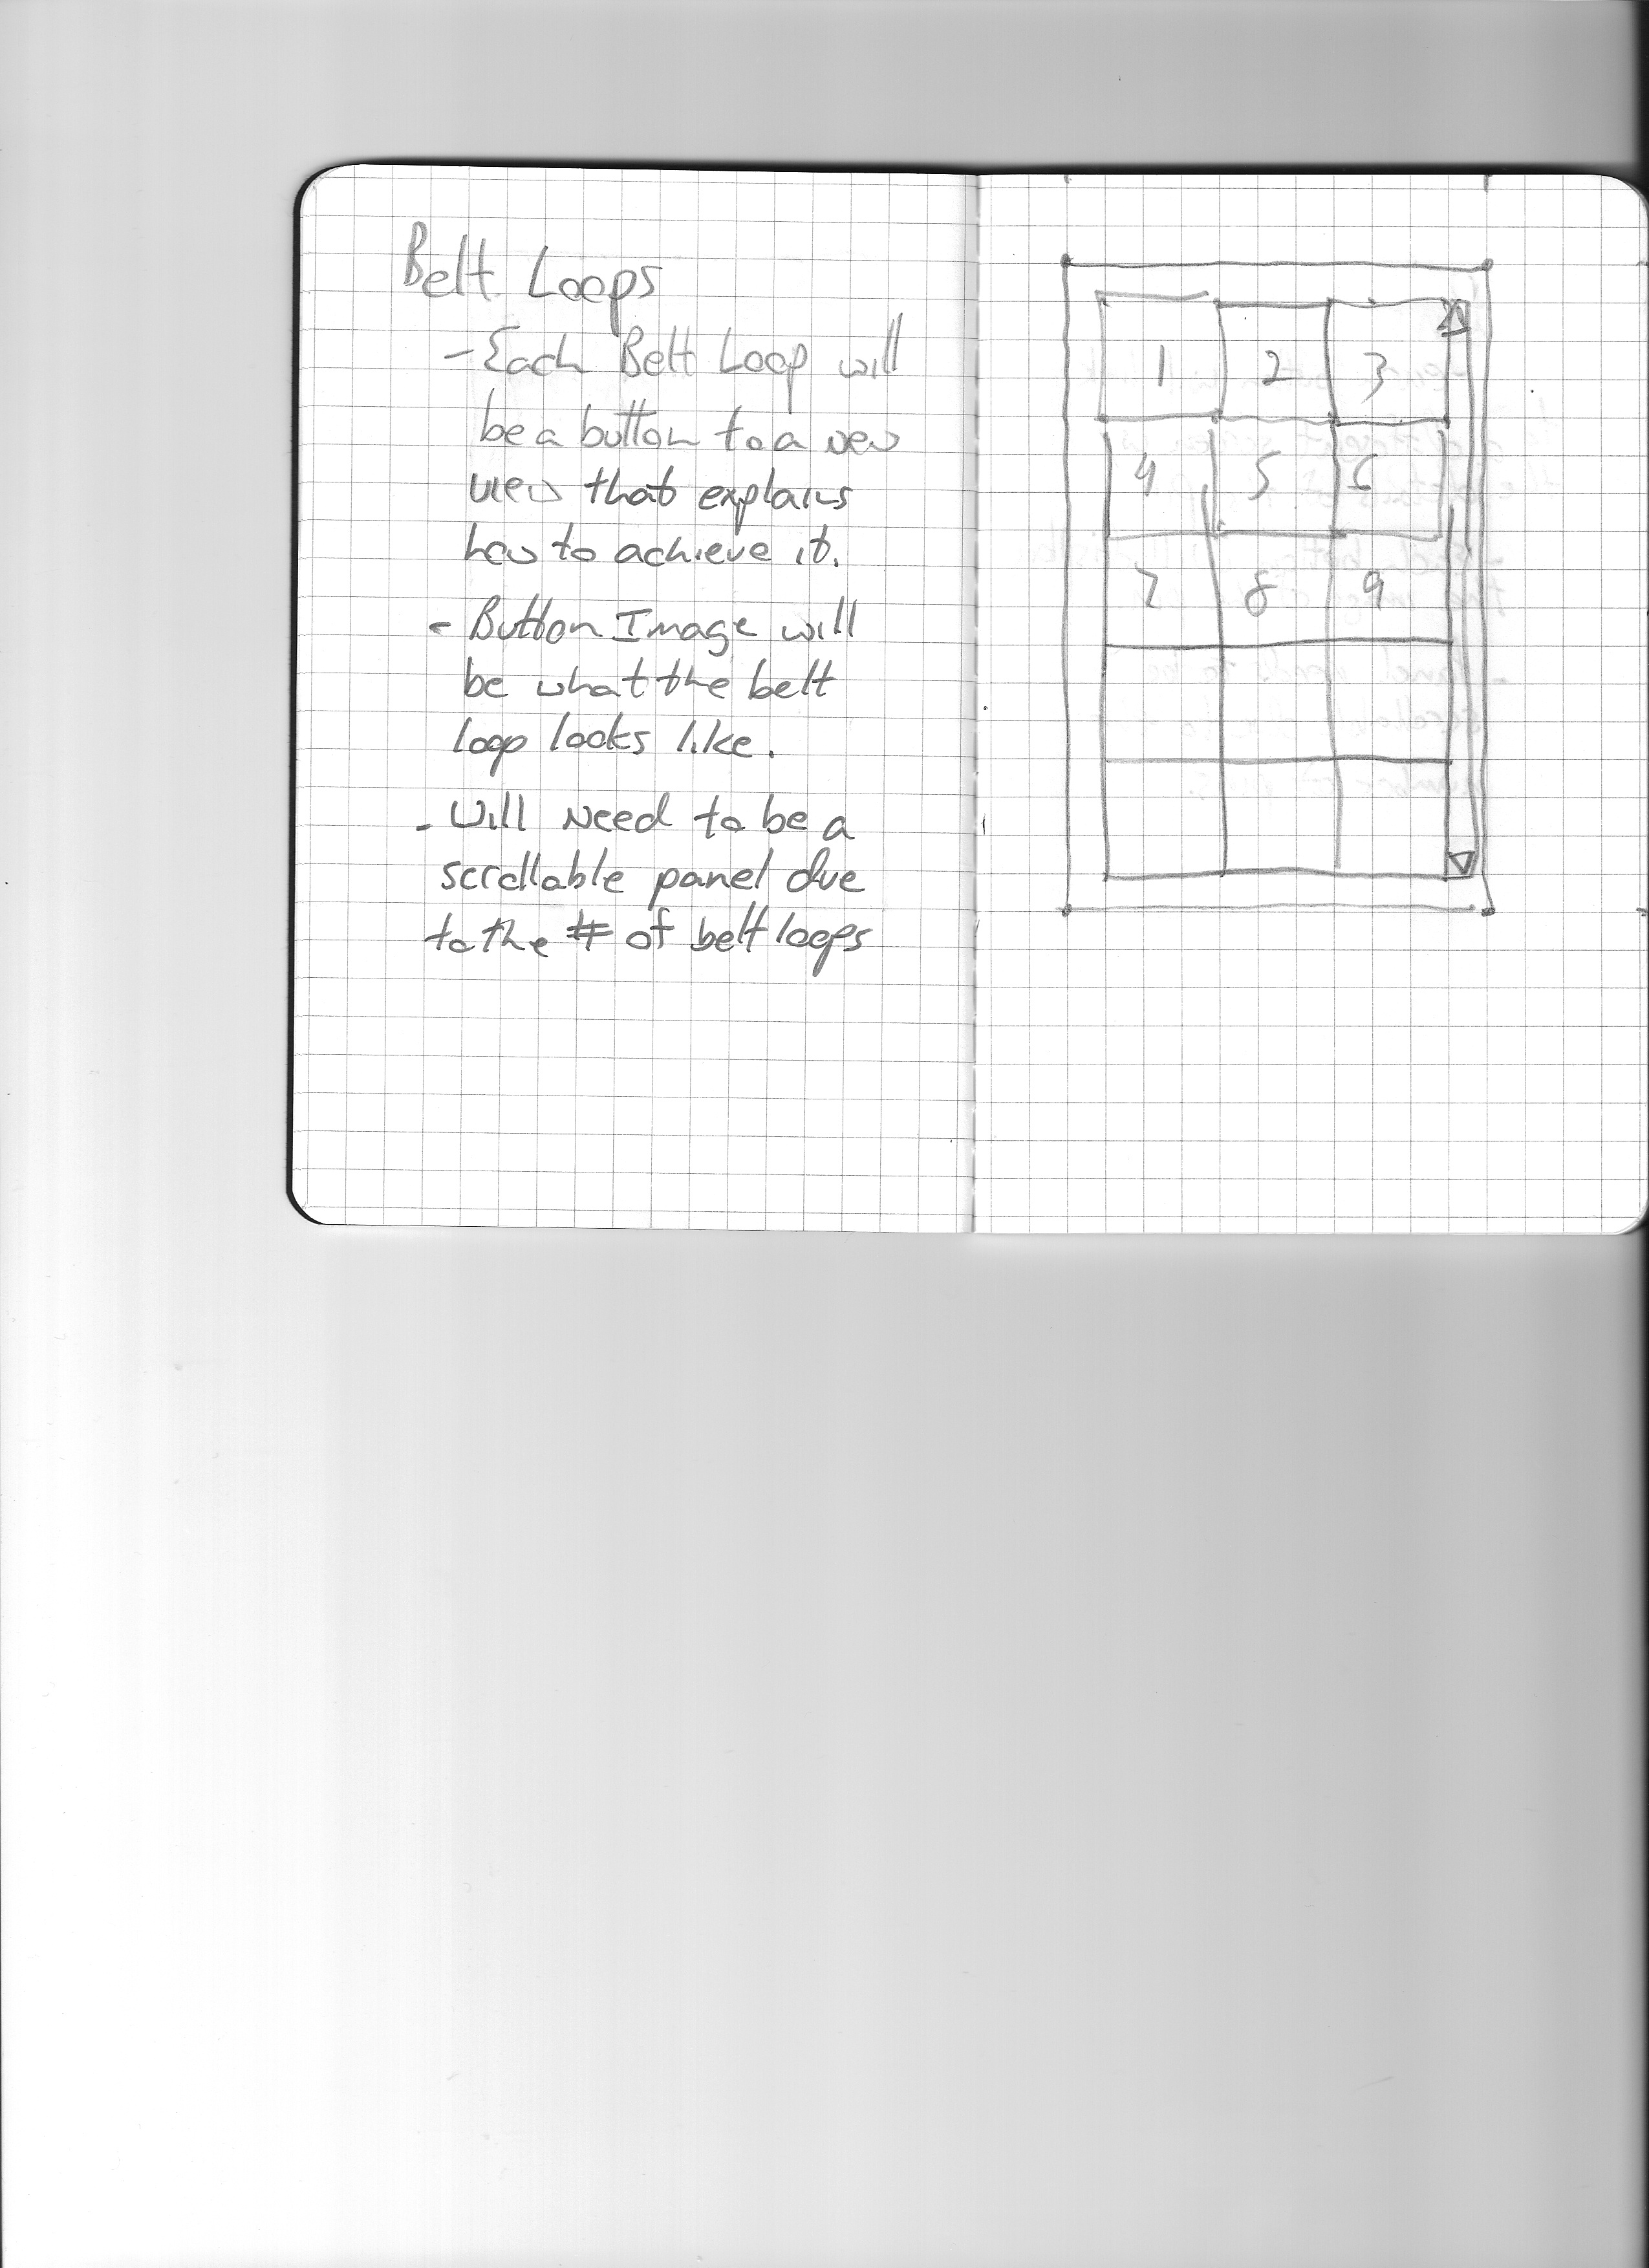 Belt Loops
- Each Belt Loop will
be a button to a new
view that explains
how to achieve it.
- Button Image will
be what the belt
loop looks like.
- Will Need to be a
scrollable panel due
to the # of belt loops
1 2 3
4 5 6
7 8 9